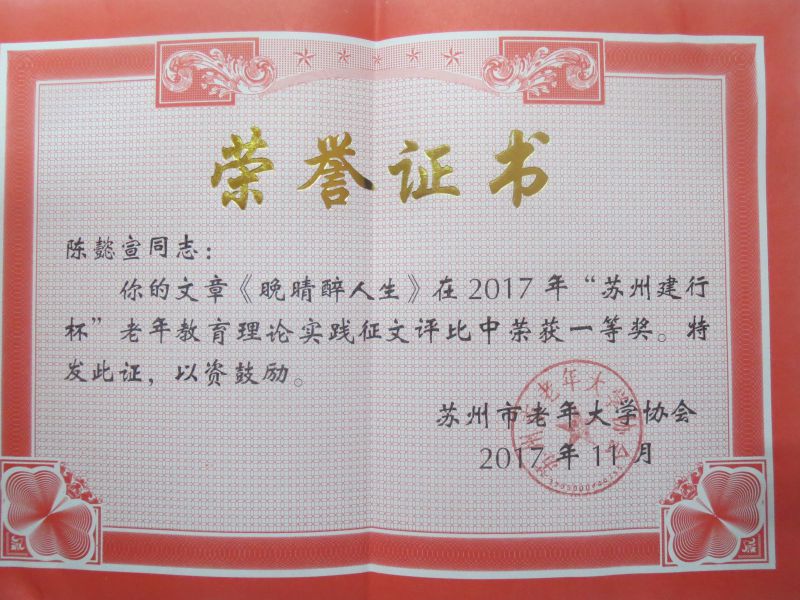 荣誉证书
陈懿宣同志：
你的文章《晚晴醉人生》在2017年“苏州建行
杯”老年教育理论实践征文评比中荣获一等奖。特
发此证，以资鼓励。
苏州市老年大学协会
2017年11月
苏州市老年大学协会